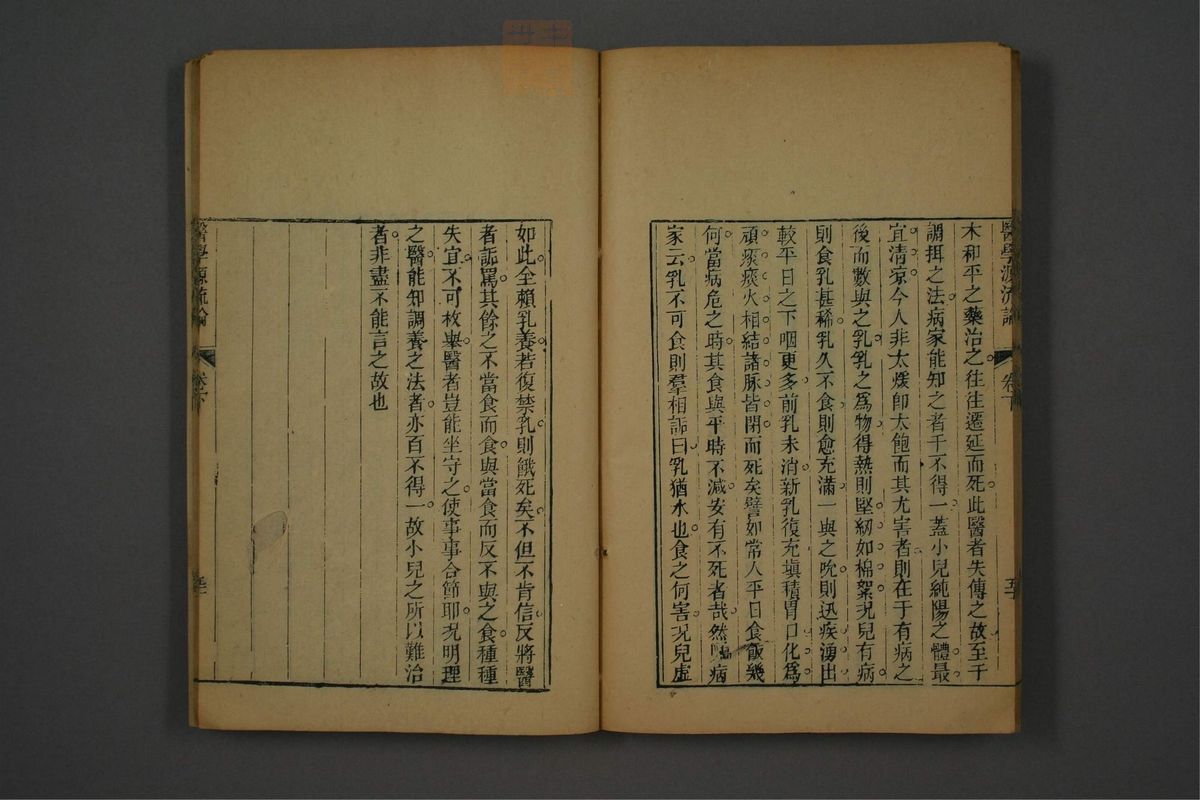 醫學源流論 卷下
木和平之藥治之往往遷延而死此醫者失傳之故至于
調攝之法病家能知之者千不得一蓋小兒純陽之體最
宜清涼今人非太煖卽太飽而其尤害者則在于有病之
後而數與之乳乳之爲物得熱則堅紉如棉絮況兒有病
則食乳甚稀乳久不食則愈充滿一與之吮則迅疾湧出
較平日之下咽更多前乳未消新乳復充塡積胃口化爲
頑痰痰火相結諸脉皆閉而死矣譬如常人平日食飯幾
何當病危之時其食與平時不減安有不死者哉然嘱病
家云乳不可食則羣相詬曰乳猶水也食之何害況兒虛
如此全賴乳養若復禁乳則餓死矣不但不肯信反將醫
者詬罵其餘之不當食而食與當食而反不與之食種種
失宜不可枚舉醫者豈能坐守之使事事合節耶況明理
之醫能知調養之法者亦百不得一故小兒之所以難治
者非盡不能言之故也
醫學源流論